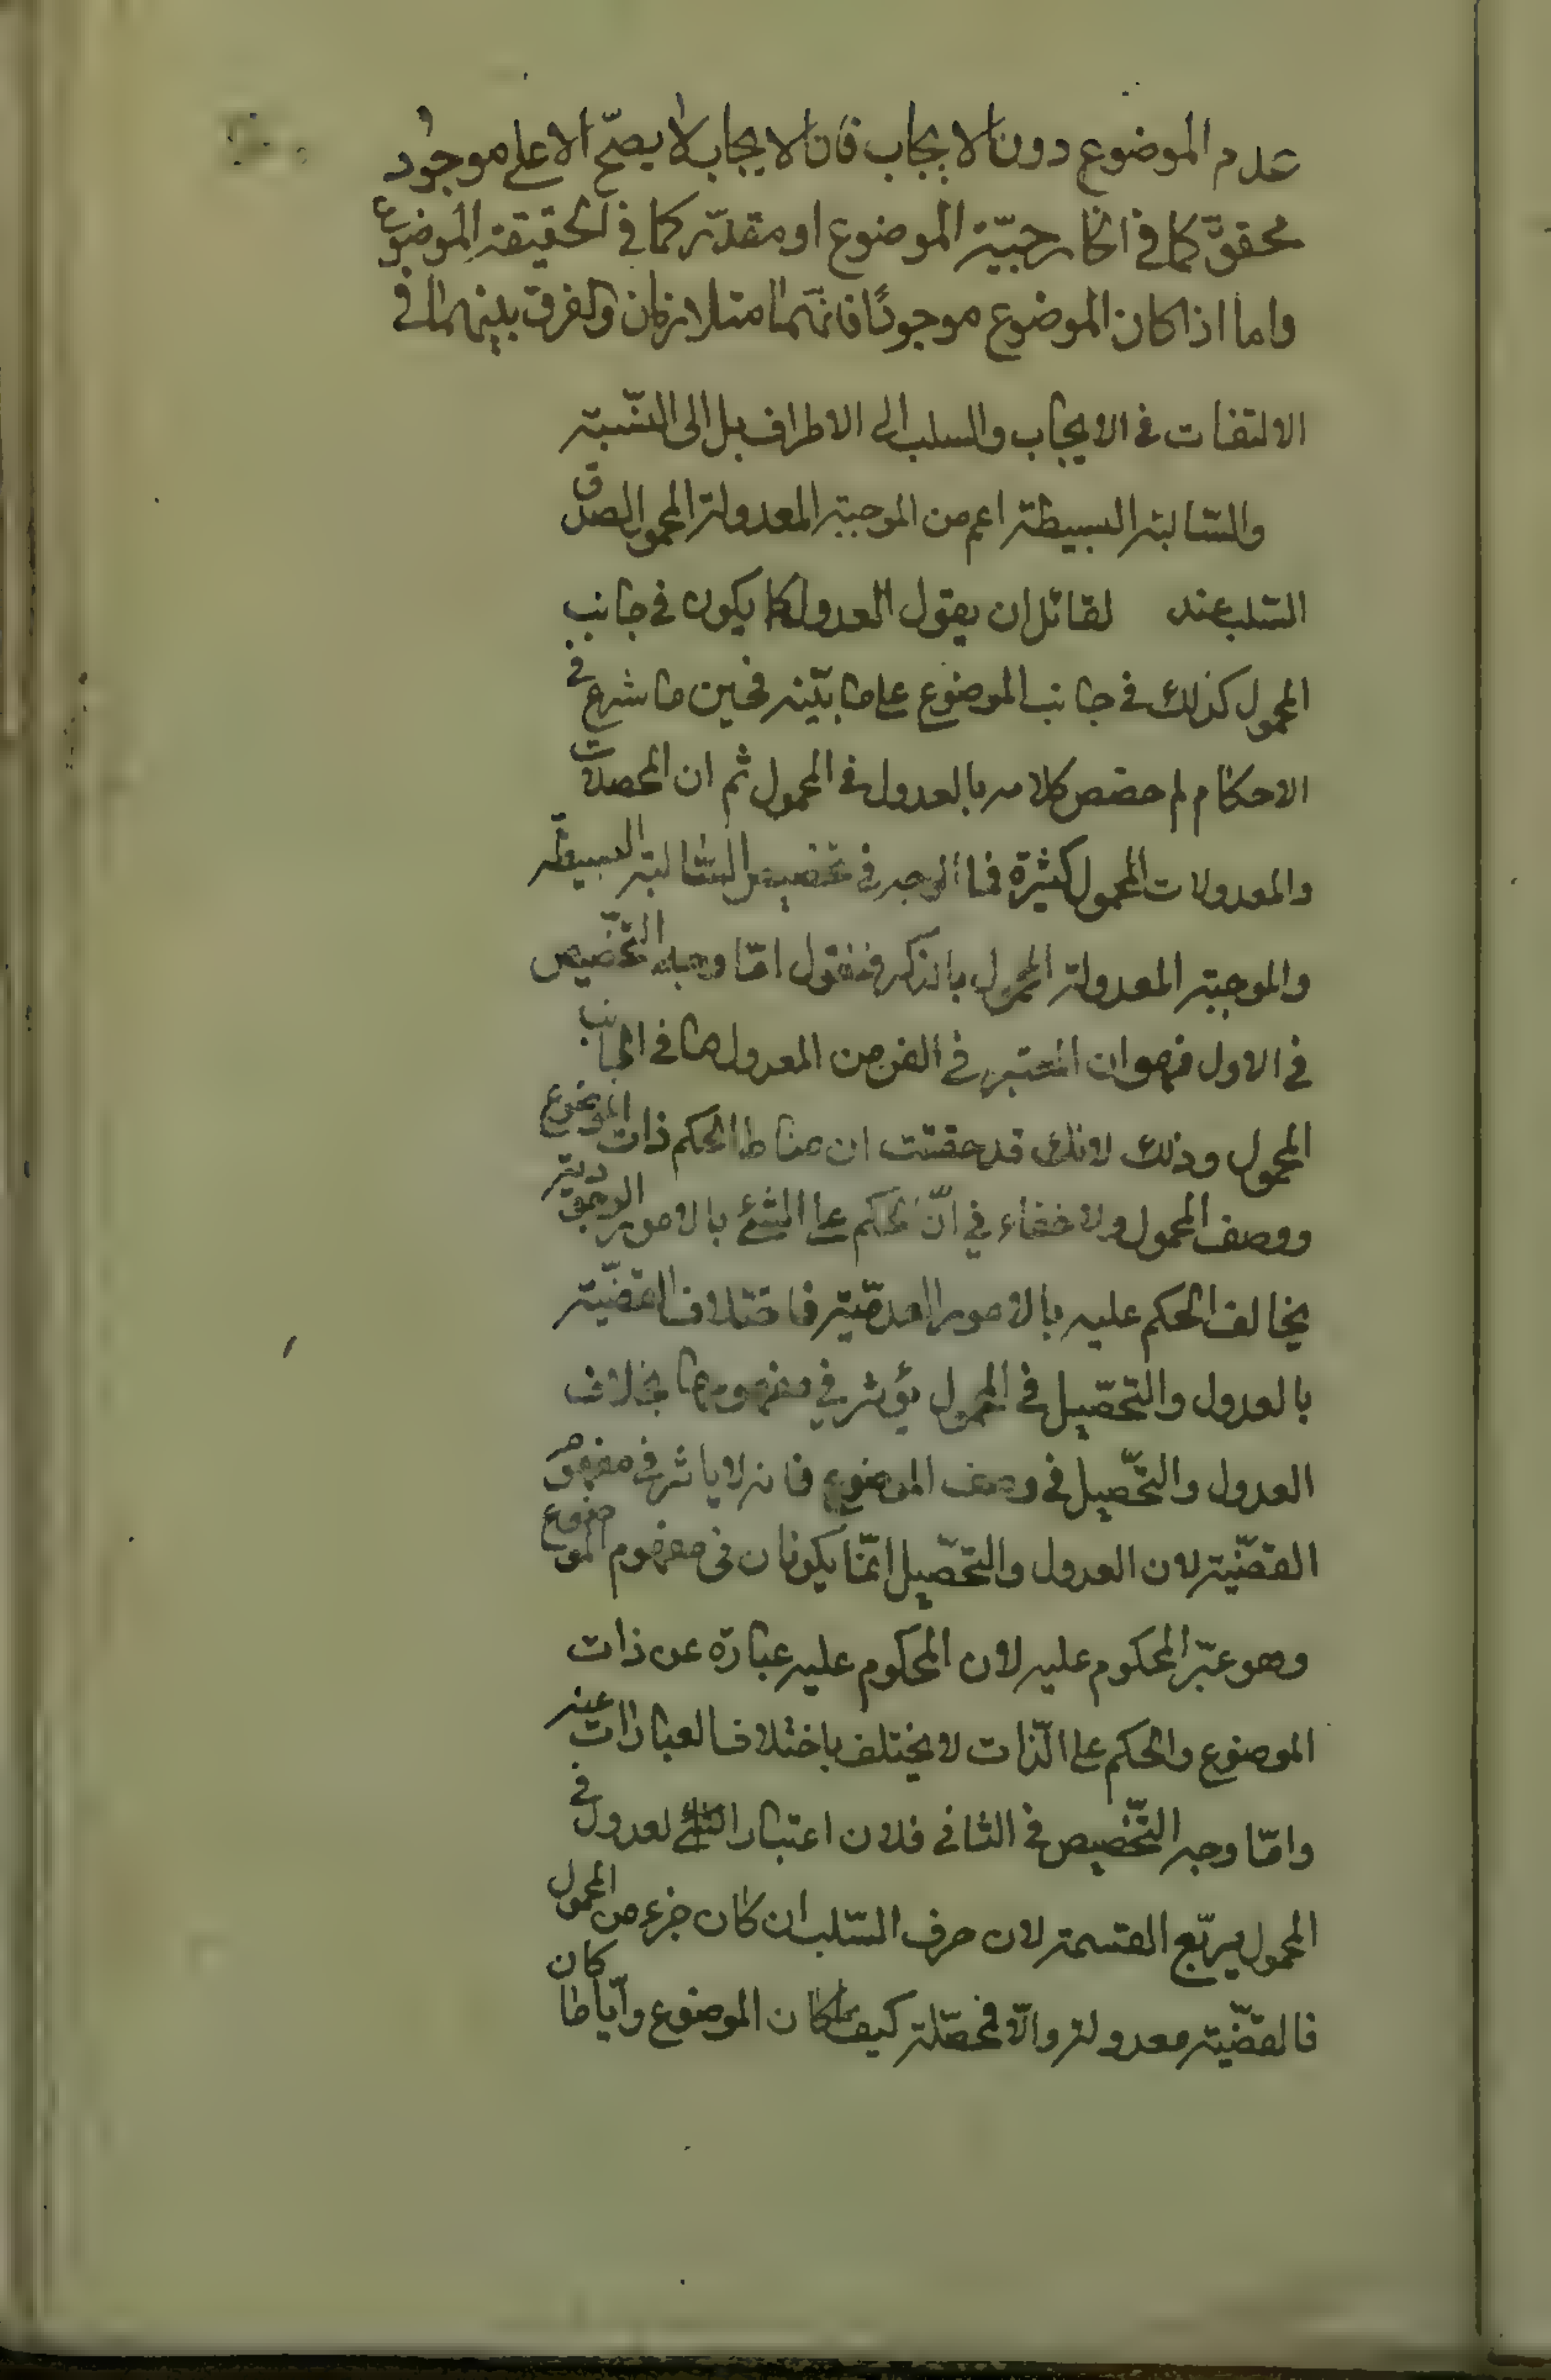 عدم الموضوع دون الايجاب فان الايجاب لا يصحّ الا على موجود
محقق كما في الخارجيّة الموضوع او مقدّر كما في الحقيقة الموضوع
واما اذا كان الموضوع موجودًا فانّهما متلازمان والفرق بينهما في
الالتفات في الايجاب والسلب الى الاطراف بل الى النّسبة
والسّالبة البسيطة اعم من الموجبة المعدولة المحمول لصدق
السّلب عند لقائل ان يقول العدول كما يكون في جانب
المحمول كذلك في جانب الموضوع على ما بيّنه فحين ما شرع في
الاحكام لم خصص كلامه بالعدول في المحمول ثم ان المحصلات
والمعدولات المحمول كثيرة فما الوجه في تخصيص السّالبة البسيطة
والموجبة المعدولة المحمول بالذكر فنقول امّا وجه التّخصيص
في الاول فهو ان المعتبر في الفن من المعدول ما في الجانب
المحمول وذلك لانك قد حققت ان مناط الحكم ذات الموضوع
ووصف المحمول ولا خفاء في انّ الحكم على الشئ بالامور الوجودية
يخالف الحكم عليه بالامور العدميّة فاختلاف القضيّة
بالعدول والتّحصيل في المحمول يؤثر في مفهومها بخلاف
العدول والتّحصيل في وصف الموضوع فانه لا ياثر في مفهوم
القضيّة لان العدول والتّحصيل انّما يكونان في مفهوم الموضوع
وهو عبّر المحكوم عليه لان المحكوم عليه عبارة عن ذات
الموضوع والحكم على الذّات لا يختلف باختلاف العبارات عنه
وامّا وجه التّخصيص في الثاني فلان اعتبار لعدول في
المحمول يربّع القسمة لان حرف السّلب ان كان جزء من المحمول
فالقضيّة معدولة والّا فمحصّلة كيف ما كان الموضوع وايّا ما كان